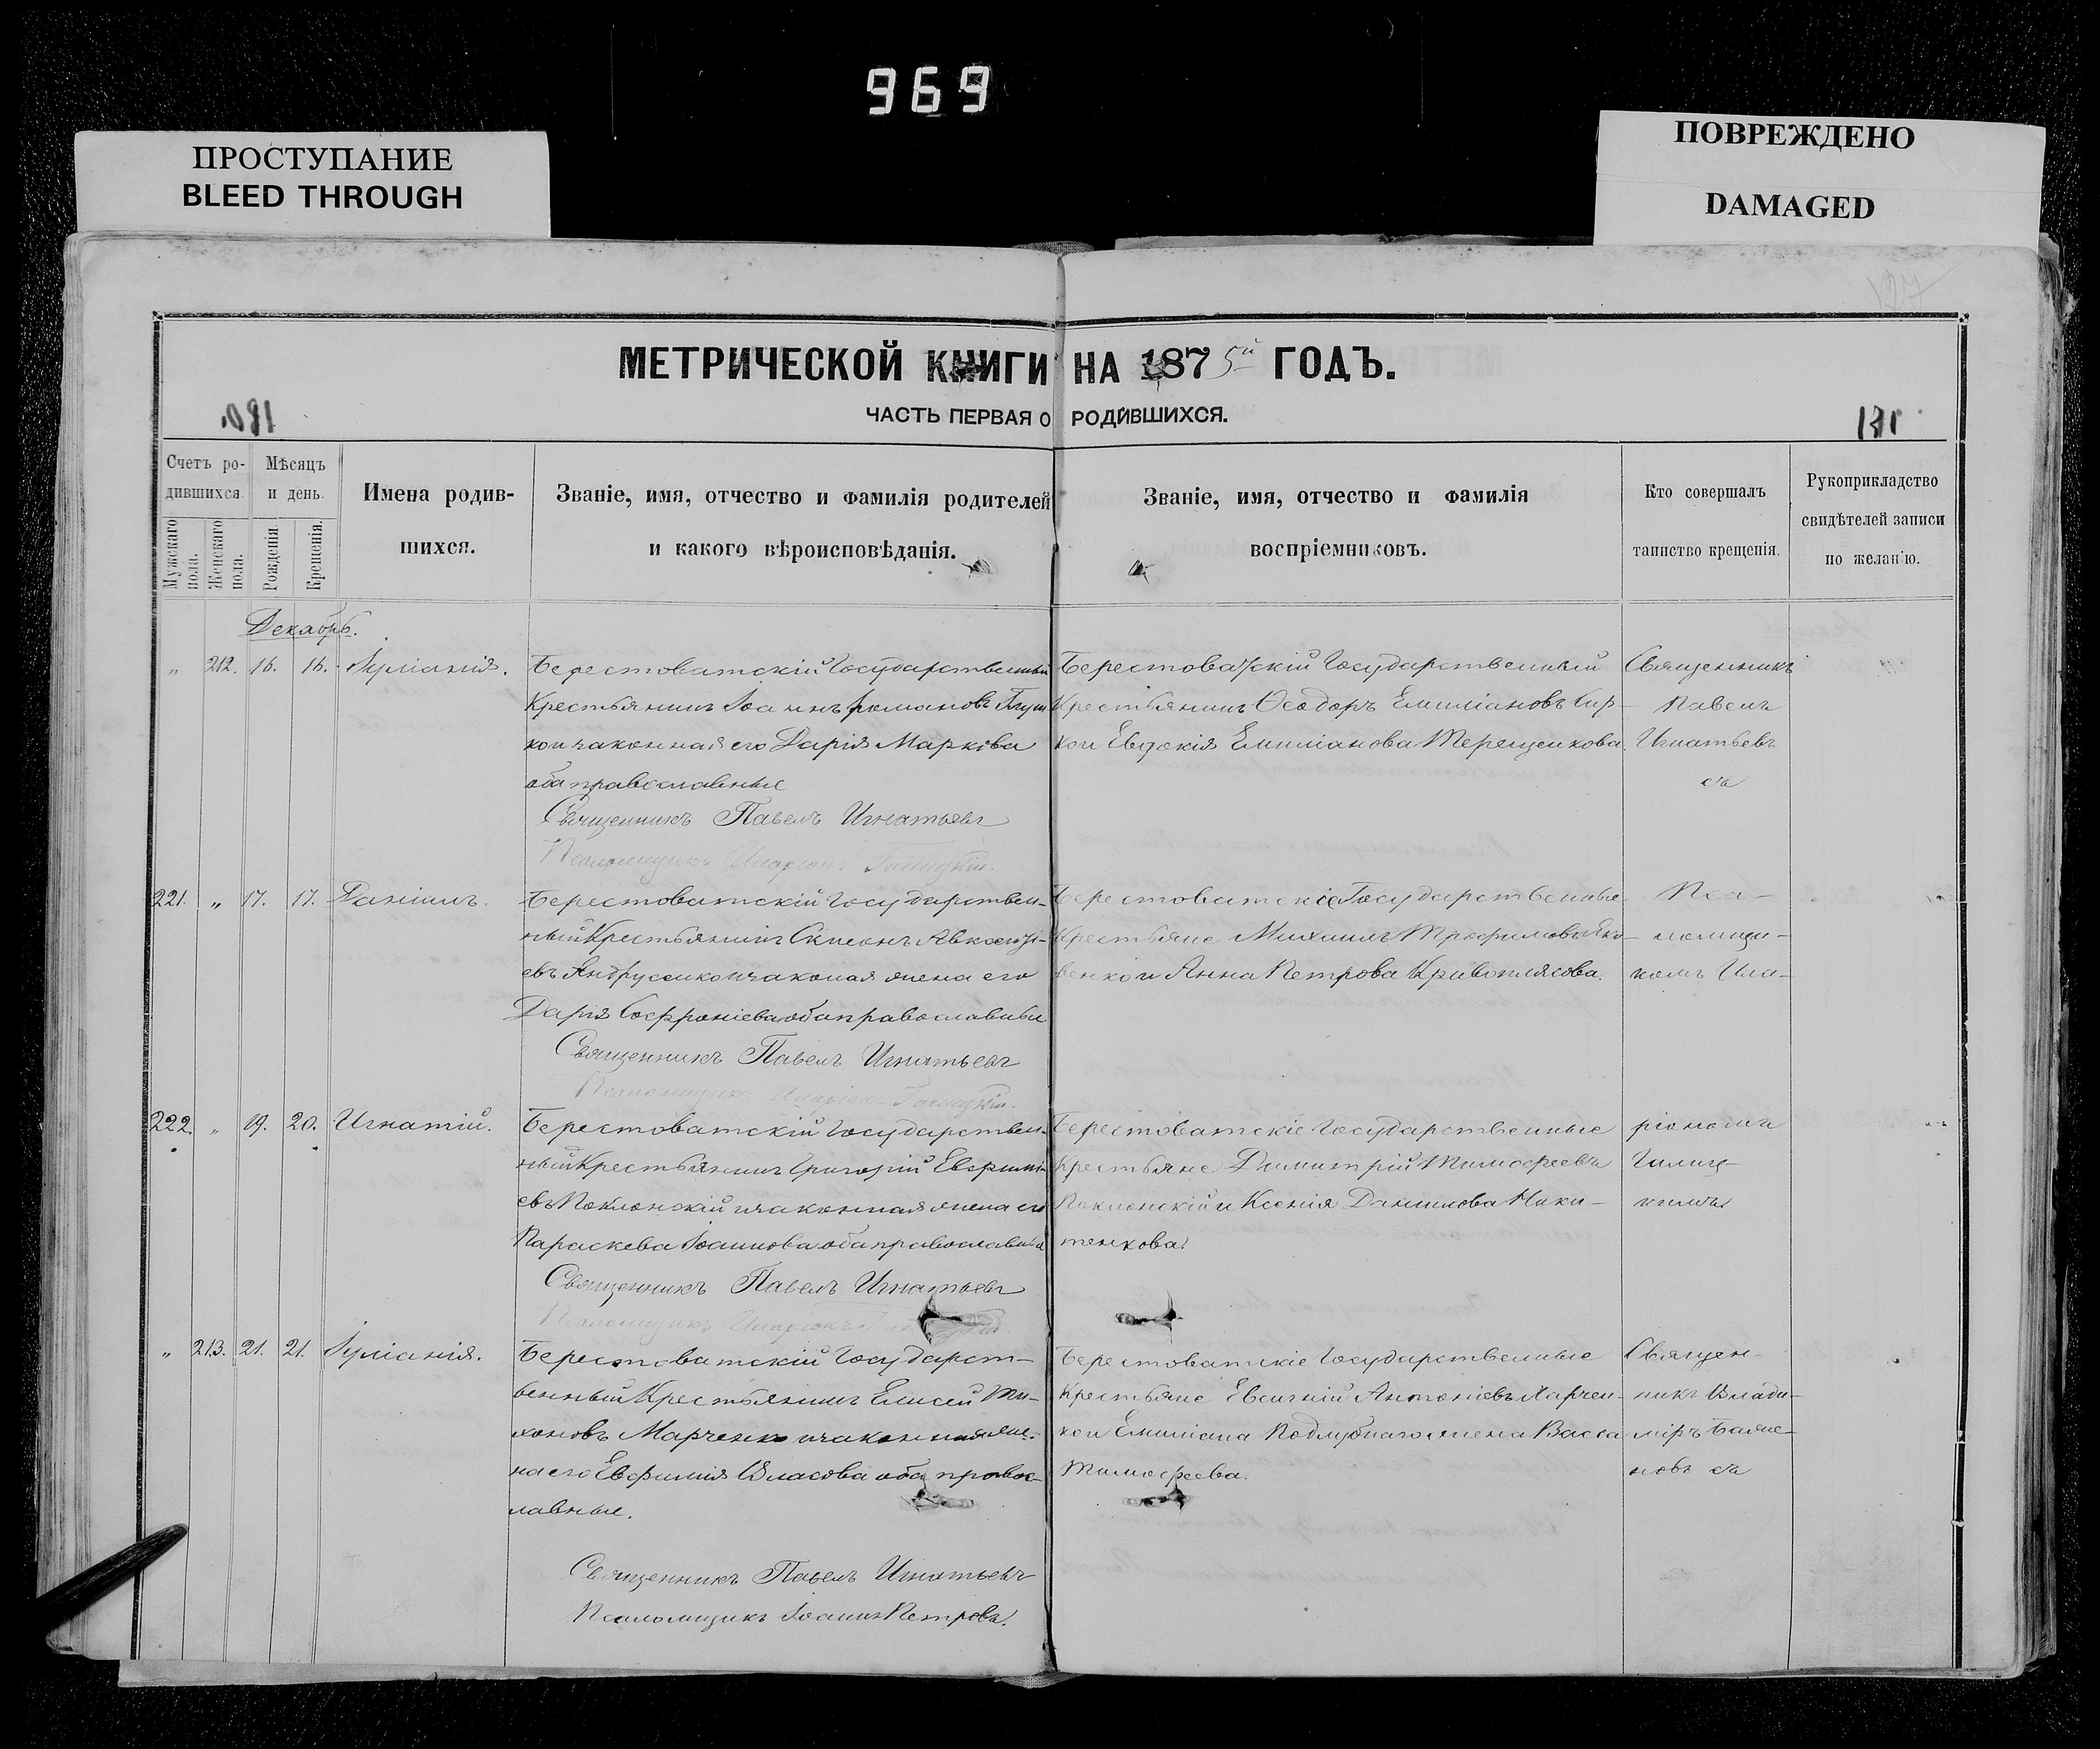 969
ПРОСТУПАНИЕ
BLEED THROUGH
ПОВРЕЖДЕНО
DAMAGED
МЕТРИЧЕСКОЙ КНИГИ НА 1875й ГОДЪ.
ЧАСТЬ ПЕРВАЯ О РОДИВШИХСЯ.
181
Счетъ родившихся.
Мужскаго пола.
Женскаго пола.
Мѣсяцъ и день.
Рожденія
Крещенія.
Имена родив-
шихся.
Званіе, имя, отчество и фамилія родителей
и какого вѣроисповѣданія.
Званіе, имя, отчество и фамилія
воспріемниковъ.
Кто совершалъ
таинство крещенія.
Рукоприкладство
свидѣтелей записи
по желанію.
Декабрь.
„ 212. 16. 16. Іуліанія.
Берестоватскій Государственный
Крестьянинъ Іоаннъ Романовъ
законная его Дарія Маркова
оба православные
Священникъ Павелъ Игнатьевъ
Псаломщикъ Иларіонъ Галицкій.
Берестоватскій Государственный
Крестьянинъ Ѳеодоръ Емиліановъ Сир-
ко и Евдокія Емиліанова Терещенкова.
Священникъ
Павелъ
Игнатьевъ
съ
221. „ 17. 17. Даніилъ.
Берестоватскій Государствен-
ный Крестьянинъ Авксентi-
евъ Андрусенко и законая жена его
Дарія Софроніева оба православные
Священникъ Павелъ Игнатьевъ
Псаломщикъ Иларіонъ Галицкій.
Берестоватскіе Государственные
Крестьяне Михаилъ Трофимовъ Яко-
венко и Анна Петрова Кривошлясова.
Пса-
ломщи-
комъ Ила-
222. „ 19. 20. Игнатій.
Берестоватскій Государствен-
ный Крестьянинъ Григорій Евфимі-
евъ Поклонскій и законная жена его
Параскева Іоаннова оба православные
Священникъ Павелъ Игнатьевъ
Псаломщикъ Иларіонъ
Берестоватскіе Государственные
Крестьяне Димитрій Тимофеевъ
Поклонскій и Ксенія Данилова Ники-
тенкова.
ріономъ
Галиц-
кимъ
„ 213. 21. 21. Іуліанія.
Берестоватскій Государст-
венный Крестьянинъ Елисей Ти-
хоновъ Марченко и законная же-
на его Евфимія Власова оба правос-
лавные.
Священникъ Павелъ Игнатьевъ
Псаломщикъ Іоаннъ Петровъ.
Берестоватскіе Государственные
Крестьяне Евгеній Антоніевъ Харчен-
ко и Емиліана Поддубнаго жена Васса
Тимофеева.
Священ-
никъ Влади-
міръ Баже-
новъ съ